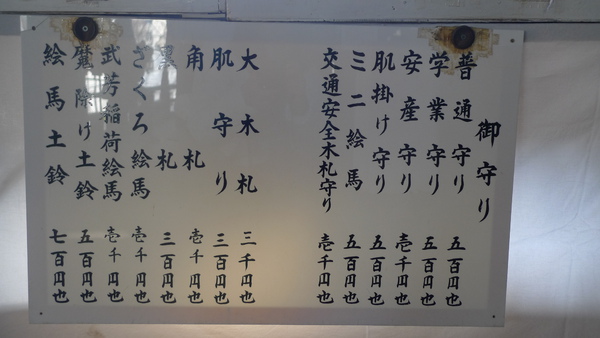 御守り
普通守り 五百円也
学業守り 五百円也
安産守り 壱千円也
肌掛け守り 五百円也
ミニ絵馬 五百円也
交通安全木札守り 壱千円也
大木札 三千円也
肌守り 三百円也
角札 壱千円也
札 三百円也
ざくろ絵馬 壱千円也
武芳稲荷絵馬 壱千円也
魔除け土鈴 五百円也
絵馬土鈴 七百円也